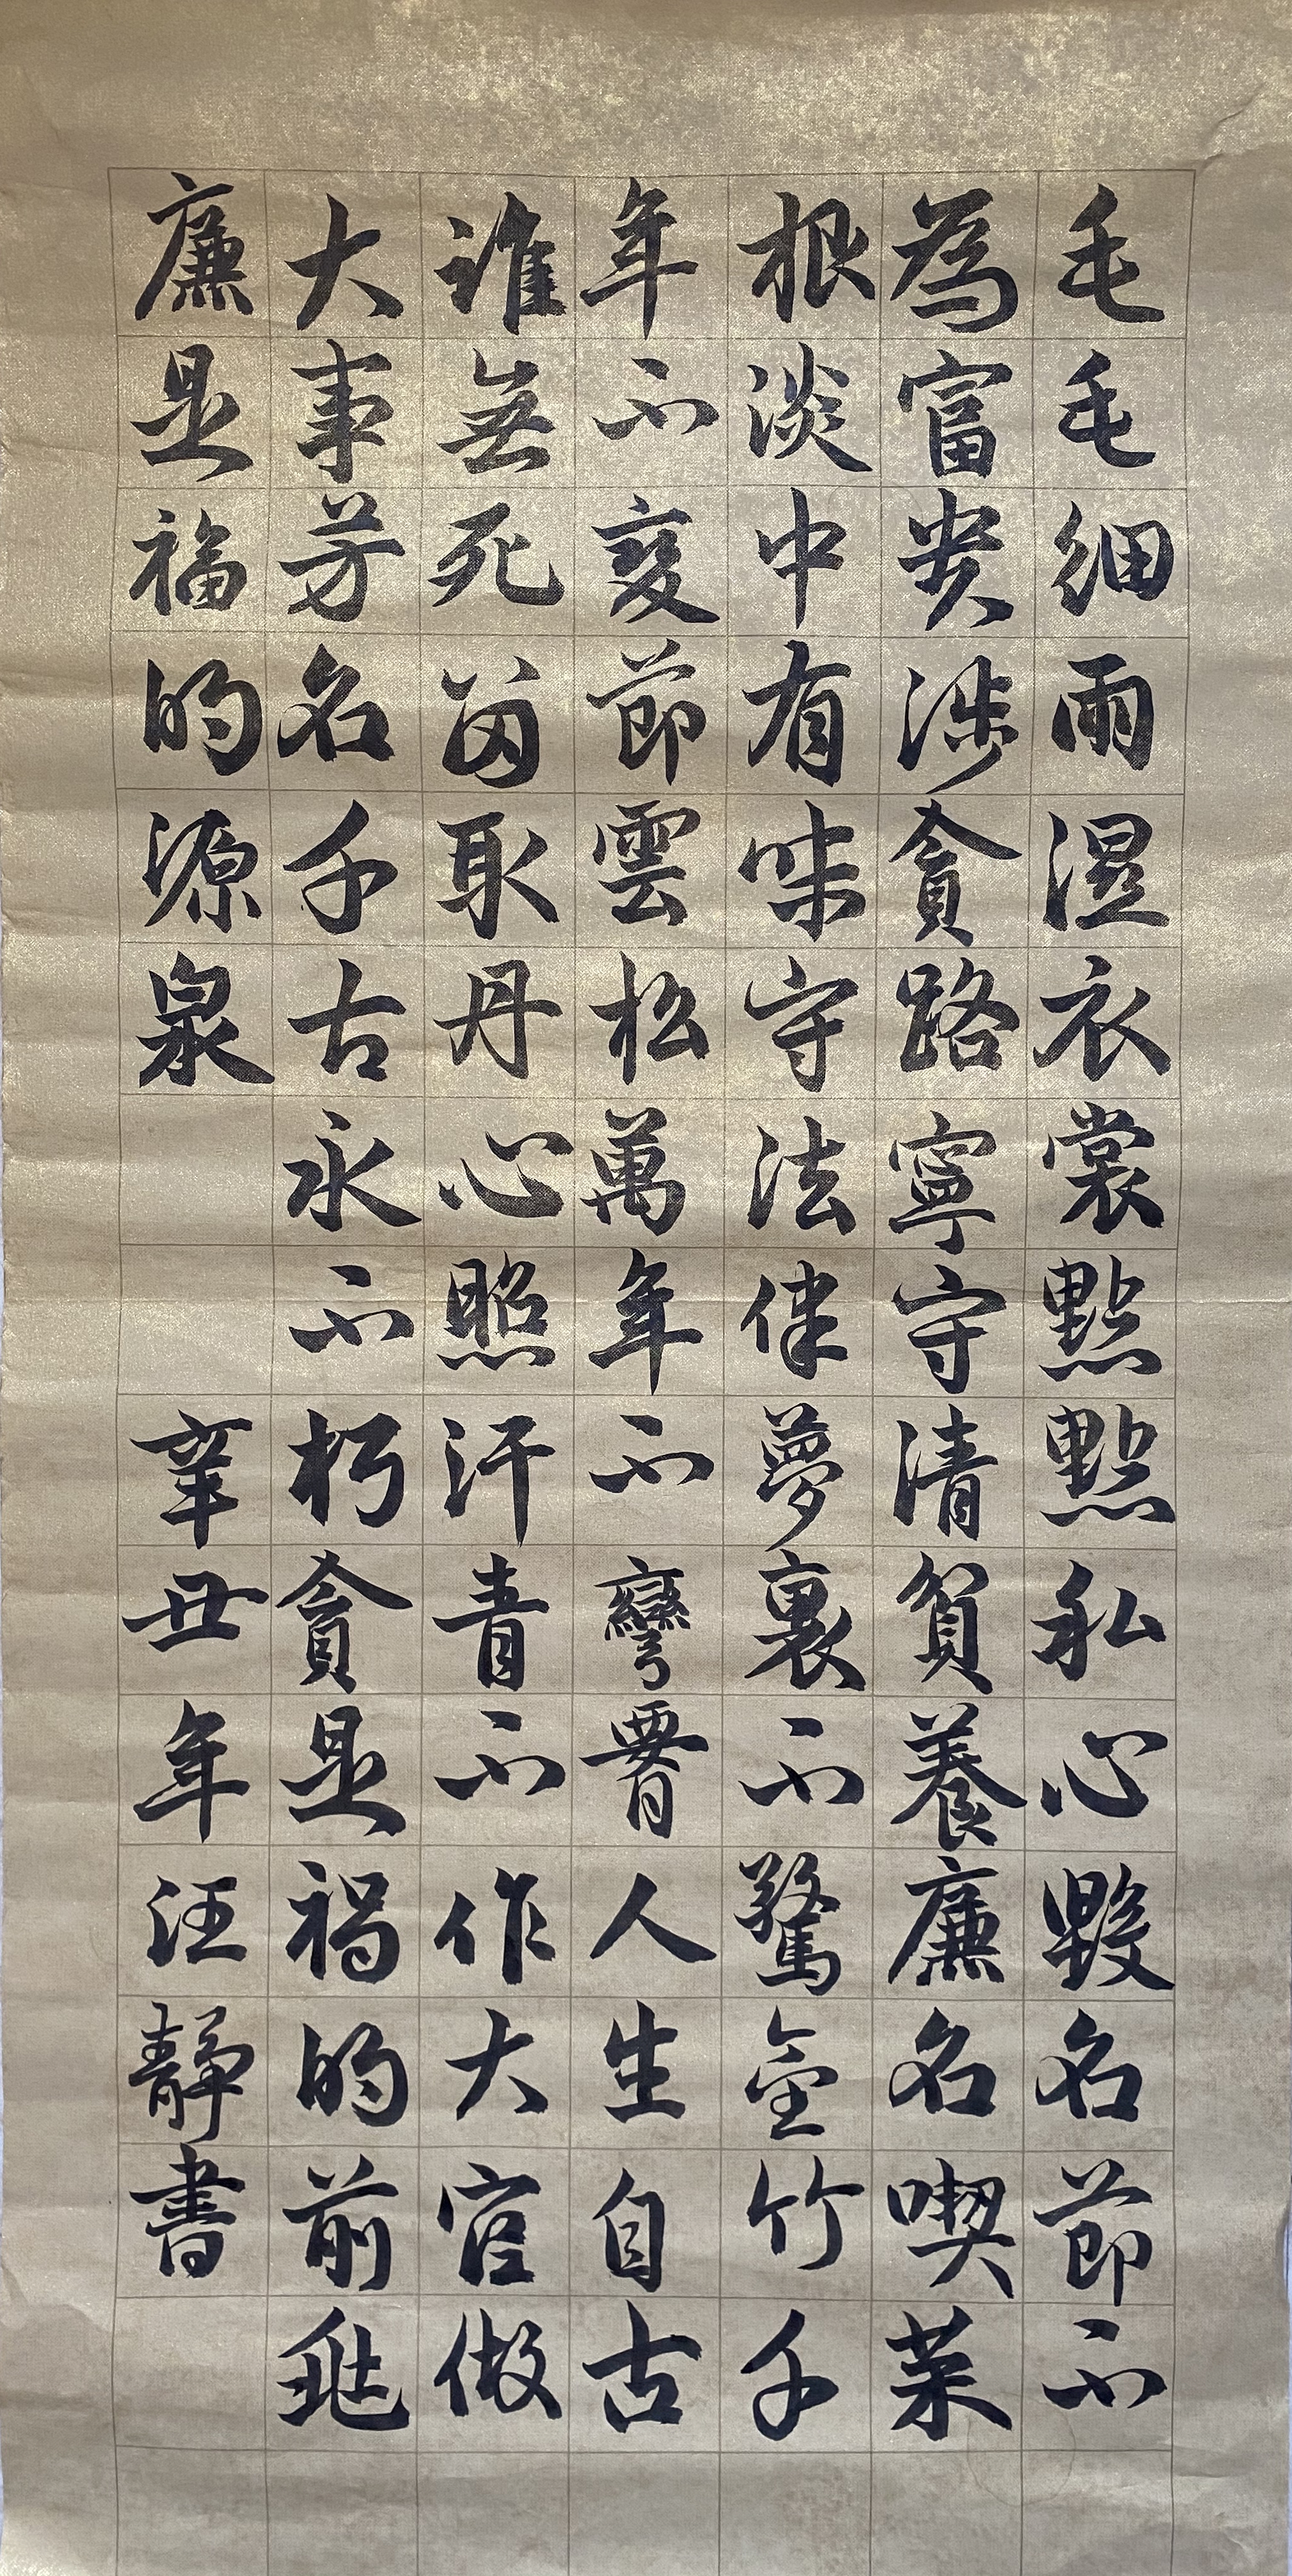 毛毛細雨濕衣裳點點私心毀名節不
為富貴涉貪路寧守清貧養廉名喫菜
根淡中有味守法律夢裏不驚金竹千
年不變節雲松萬年不彎腰人生自古
誰無死留取丹心照汗青不作大官做
大事芳名千古永不朽貪是禍的前兆
廉是福的源泉 辛丑年汪靜書